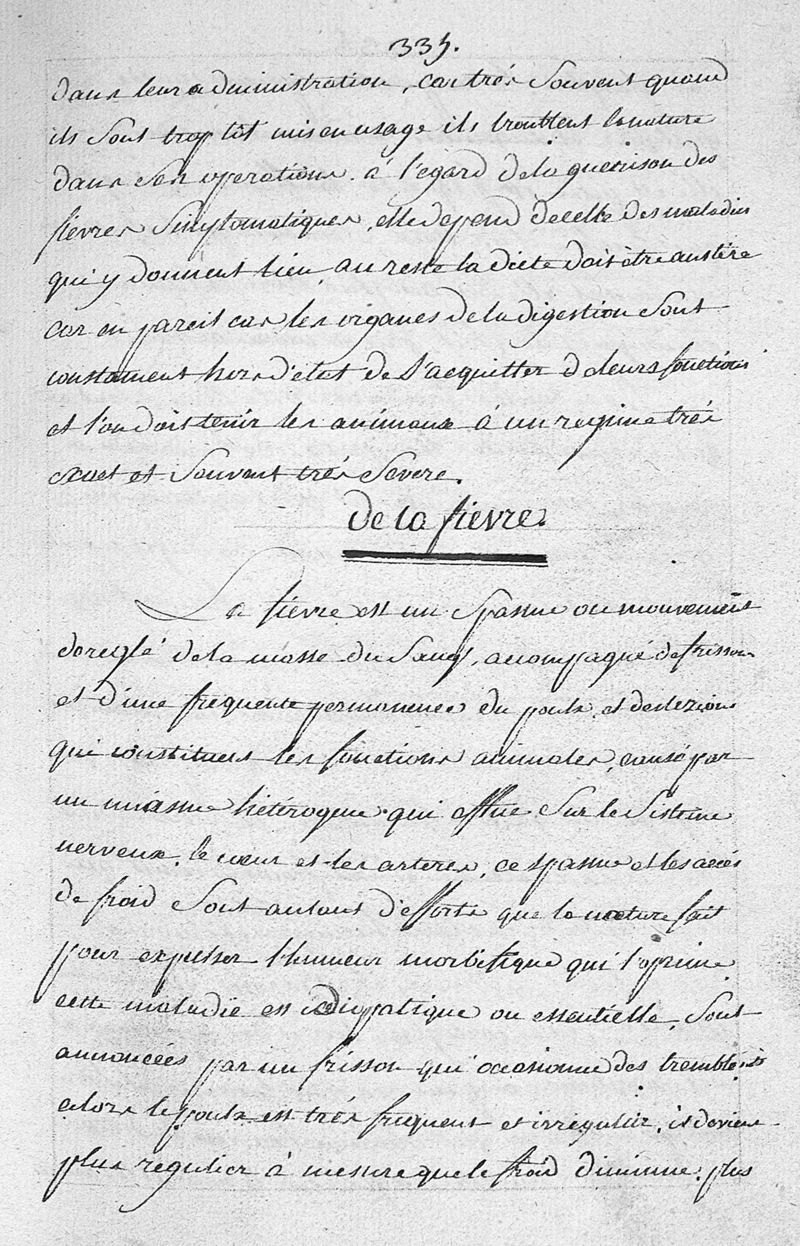 335.
dans leur administration, car très souvent quand
ils sont trop tôt mis en usage ils troublent la nature
dans ses operations. à l'égard de la guerison des
fievres Simptomatiques, elle depend de celle des maladies
qui y donnent lieu, au reste la diete doit être austère
car en pareil cas les organes de la digestion sont
constament hors d'etat de s'acquitter de leurs fonctions
et l'on doit tenir les animaux à un regime très
exact et souvent très severe.
de la fievre.
La fievre est un Spasme ou mouvement
dereglé de la masse du Sang, acompagné de frisson
et d'une frequente permanence du poulx, et des lezions
qui constituent les fonctions animales, causé par
un miasme hétérogene qui afflue sur le Sisteme
nerveux, le cœur et les arteres, ce spasme et les accès
de froid sont autant d'efforts que la nature fait
pour expulser l'humeur morbifique qui l'oprime,
cette maladie est idiopatique ou essentielle, sont
annoncées par un frisson qui occasionne des tremblents
alors le poulx est très frequent et irrégulier, il devient
plus regulier à mesure que le froid diminue, plus